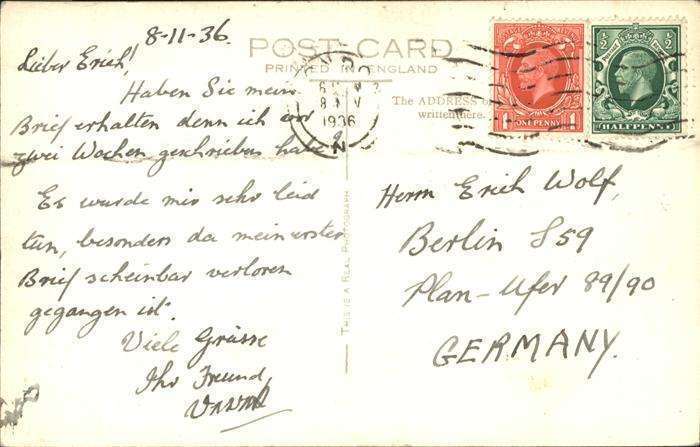 8-11-36.
POST CARD
PRINTED IN ENGLAND
Lieber Erich!
Haben Sie mein
Brief erhalten denn ich vor
zwei Wochen geschrieben habe?
Es wurde mir sehr leid
tun, besonders da mein erster
Brief scheinbar verloren
gegangen ist.
Viele Grüsse
Ihr Freund,
THIS IS A REAL PHOTOGRAPH
The ADDRESS
written here.
8
1936
N
1 ONE PENNY 1
½ ½
HALFPENNY
Herrn Erich Wolf,
Berlin S59
Plan-Ufer 89/90
GERMANY.